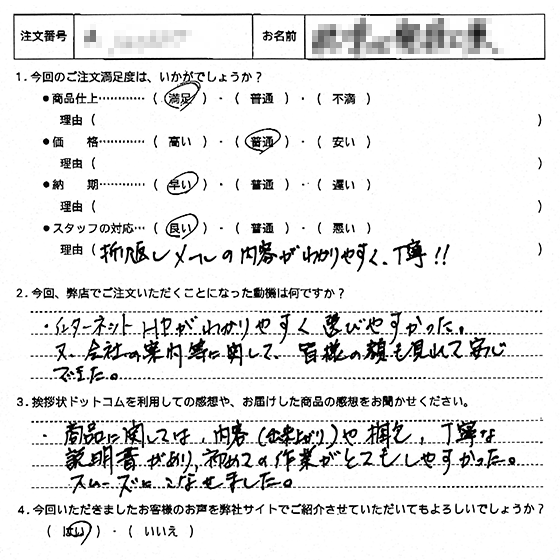 注文番号 お名前
1．今回のご注文満足度は、いかがでしょうか？
●商品仕上…………（ 満足 ）・（ 普通 ）・（ 不満 ）
理由（ ）
●価　　格…………（ 高い ）・（ 普通 ）・（ 安い ）
理由（ ）
●納　　期…………（ 早い ）・（ 普通 ）・（ 遅い ）
理由（ ）
●スタッフの対応…（ 良い ）・（ 普通 ）・（ 悪い ）
理由（ 折返しメールの内容がわかりやすく、丁寧!! ）
2．今回、弊店でご注文いただくことになった動機は何ですか？
・インターネットHPがわかりやすく選びやすかった。
又、会社の案内等に関して、皆様の顔も見れて安心
できた。
3．挨拶状ドットコムを利用しての感想や、お届けした商品の感想をお聞かせください。
・商品に関しては、内容（出来上がり）や 、丁寧な
説明書があり、初めての作業がとてもしやすかった。
スムーズにこなせました。
4．今回いただきましたお客様のお声を弊社サイトでご紹介させていただいてもよろしいでしょうか？
（ はい ）・（ いいえ ）